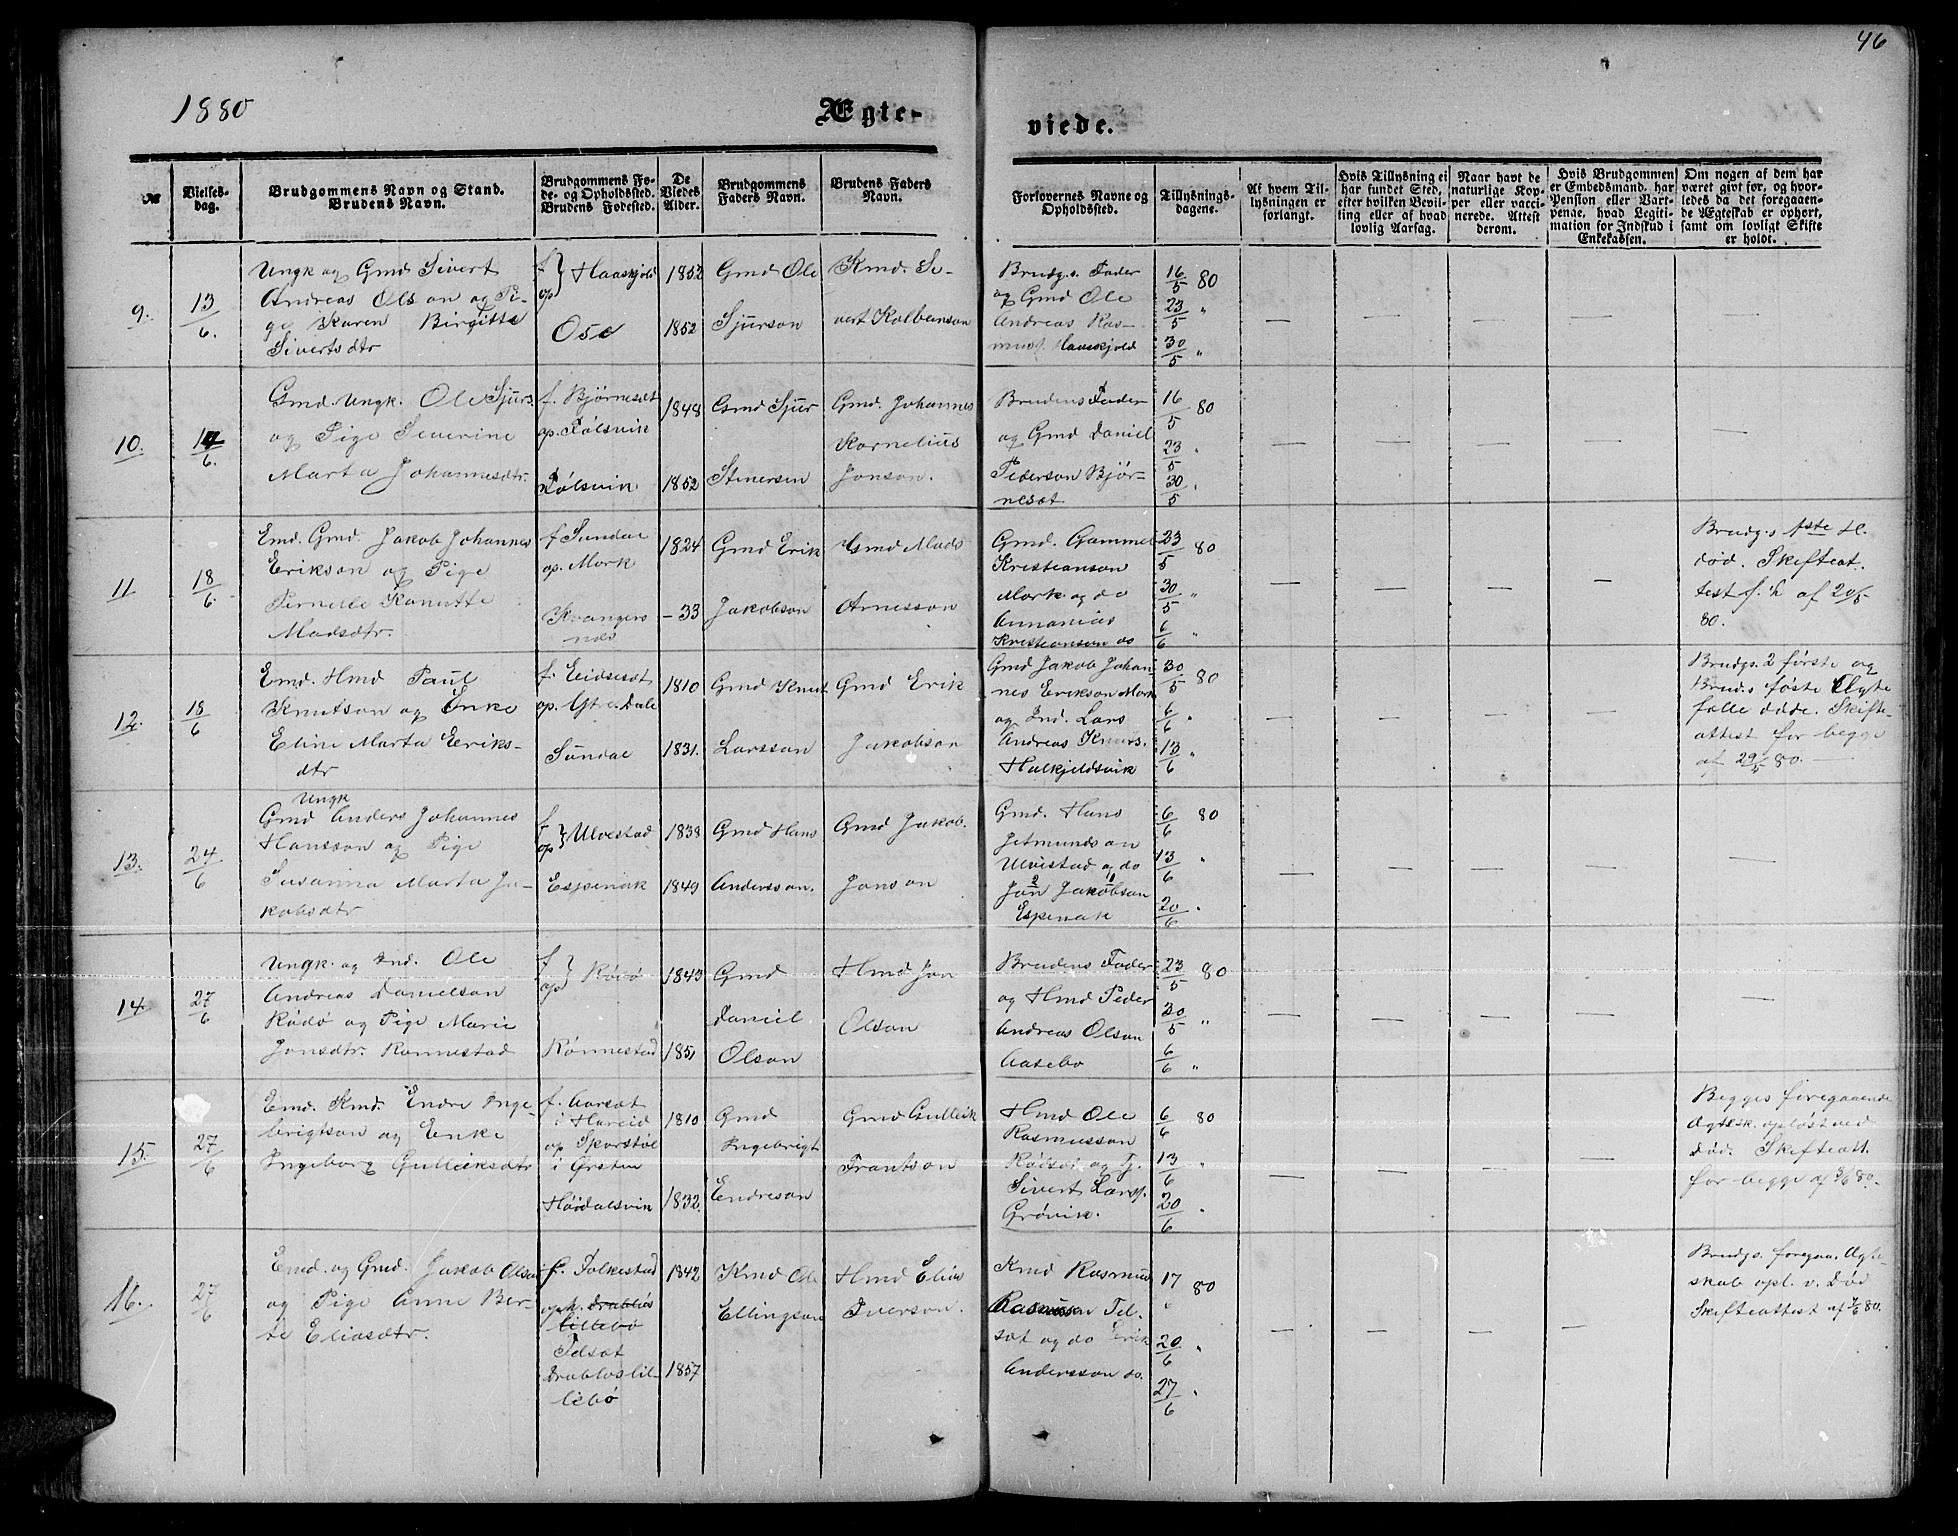 46
1880
Ægte-
viede.
№
Vielses-
dag.
Brudgommens Navn og Stand.
Brudens Navn.
Brudgommens Fø-
de- og Opholdssted.
Brudens Fødested.
De
Viedes
Alder.
Brudgommens
Faders Navn.
Brudens Faders
Navn.
Forlovernes Navne og
Opholdssted.
Tillysnings-
dagene.
Af hvem Til-
lysningen er
forlangt.
Hvis Tillysning ei
har fundet Sted,
efter hvilken Bevil-
ling eller af hvad
lovlig Aarsag.
Naar havt de
naturlige Kop-
per eller vacci-
nerede. Attest
derom.
Hvis Brudgommen
er Embedsmand, har
Pension eller Vart-
penge, hvad Legiti-
mation for Indskud i
Enkekassen.
Om nogen af dem har
været givt før, og hvor-
ledes da det foregaaen-
de Ægteskab er ophørt,
samt om lovligt Skifte
er holdt.
9.
13/6.
Ungk og Gmd Sivert
Andreas Olson og Pi-
ge Karen Birgitte
Sivertsdtr
f. } Haaskjold
op
Ose
1852
1852
Gmd Ole
Sjurson
Kmd. Si-
vert Kolbenson
Brudg.s Fader
og Gmd Ole
Andreas Ras-
muss. Haaskjold
16/5 80
23/5 "
30/5 "
10.
14/6.
Gmd. Ungk. Ole Sjurs.
og Pige Severine
Marta Johannesdtr.
f. Bjørneset
op. Følsvik
Følsvik
1848
1852
Gmd Sjur
Stinersen
Gmd. Johannes
Kornelius
Jonson.
Brudens Fader
og Gmd Daniel
Pederson Bjør-
neset
16/5 80
23/5 "
30/5 "
11
18/6.
Emd. Gmd. Jakob Johannes
Erikson og Pige
Pernelle Kanutte
Madsdtr.
f Sundal
op. Mork
Kvangers
nes
1824
-33
Gmd Erik
Jakobson
Gmd Mads
Arnesson
Gmd. Gammel
Kristianson
Mork og do
Annanias
Kristianson do
23/5 80
30/5 "
6/6 "
Brudg.s 1ste H.
død. Skifteat.
test f. h af 20/5
80.
12.
18/6
Emd. Hmd Paul
Knutson og Enke
Eline Marta Eriks-
dtr
f. Eidseset
op. Ytre Dale
Sundal
1810
1831.
Gmd Knut
Larsson
Gmd Erik
Jakobson
Gmd Jakob Johan-
nes Erikson Mork
og Ind. Lars
Andreas Knuts.
Halkjeldsvik
30/5 80
6/6 "
13/6 "
Brudgs. 2 første og
Bruds føste Ægte
falle døde. Skifte-
attest for begge
af 29/5 80.
13.
24/6
Ungk
Gmd Anders Johannes
Hansson og Pige
Susanna Marta Ja-
kobsdtr
f. } Ulvestad
op
Espenak
1838
1849
Gmd Hans
Andersson.
Gmd Jakob.
Jonson
Gmd. Hans
Jetmundson
Ulvestad og do
Jon Jakobson
Espenak
6/6 80
13/6 "
20/6 "
14.
27/6
Ungk. og Ind. Ole
Andreas Danielson
Rødø og Pige Marie
Jonsdtr. Rønnestad
f } Rødø
op
Rønnestad
1843
1851
Gmd
Daniel
Olson
Hmd Jon
Olson
Brudens Fader
og Hmd Peder
Andreas Olson
Aasebø
23/5 80
30/5 "
6/6 "
15.
27/6
Emd. Kmd. Endre Inge-
brigtson og Enke
Ingeborg Gulleiksdtr
f. Aarset
i Hareid
op Skorstøl
i Ørsten
Høidalsvik
1810
1832.
Gmd
Ingebrigt
Endreson
Gmd Gulleik
Frantson
Hmd Ole
Rasmusson
Rødset og Tj.
Sivert Larss.
Grøvik.
6/6 80
13/6 "
20/6 "
Begges foregaaende
Ægtesk. opløst ved
Død. Skifteatt.
for begge af 3/6 80.
16.
27/6
Emd. og Gmd. Jakob Olson
og Pige Anne Ber-
te Eliasdtr.
f. Folkestad
oph. Drabløs
lillebø
Pilsæt
Drabløslil-
lebø
1842
1857
Kmd Ole
Ellingson
Hmd Elias
Iverson.
Kmd Rasmus
Rasmusson Pil-
sæt og do Erik
Andersson do.
17 80
"
20/6 "
27/6 "
Brudgs. foregaa. Ægte-
skab opl. v. Død
Skifteattest af 7/6 80.